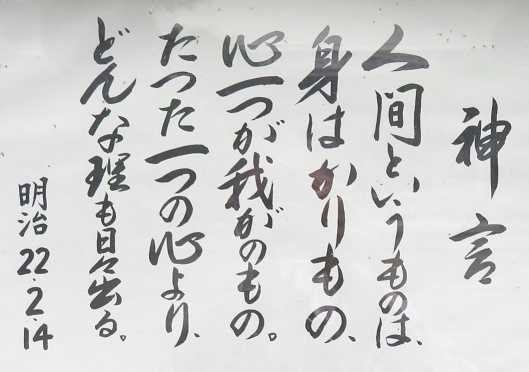 神言
人間というものは、
身はかりもの、
心一つが我がのもの。
たった一つの心より、
どんな理も日々出る。
明治22.2.14